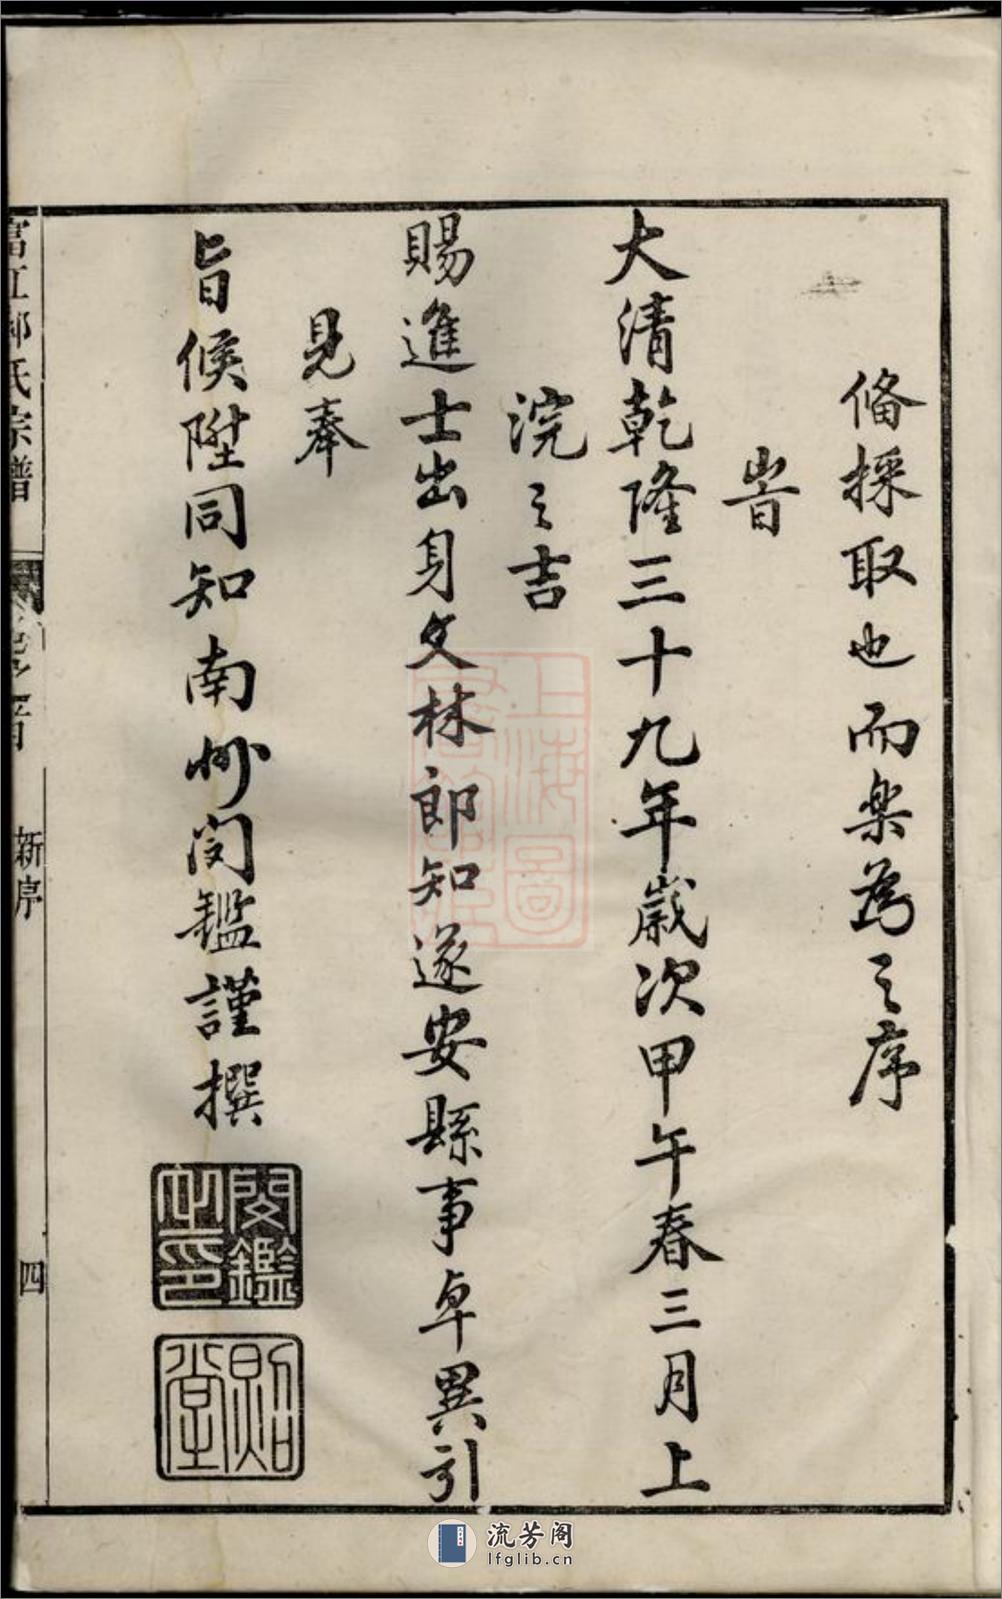 俻採取也而楽為之序
峕
大清乾隆三十九年歲次甲午春三月上
浣之吉
賜進士出身文林郎知遂安縣事卓異引
見奉
旨候陞同知南州閔鑑謹撰
閔鑑之印
氏宗譜
卷之首
新序
四
上海圖書館藏
流芳阁
lfglib.cn